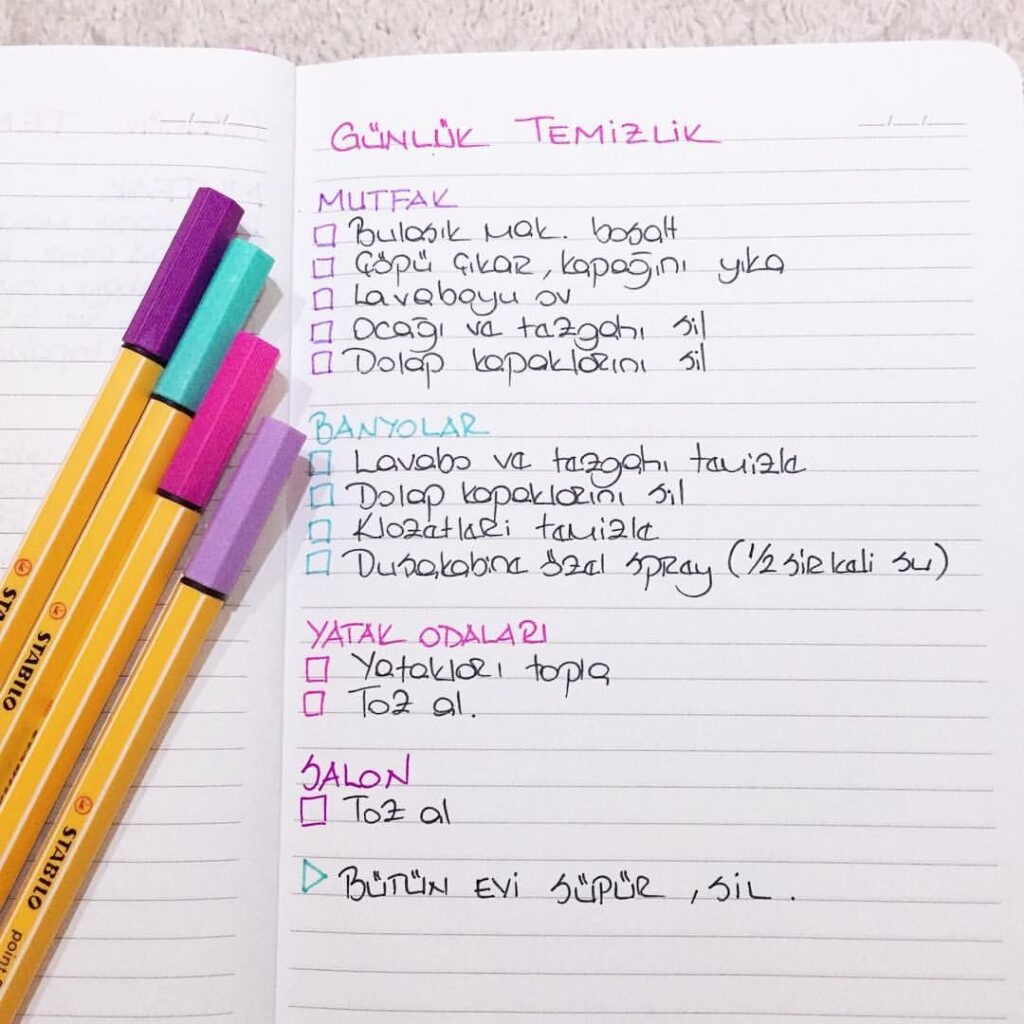 GÜNLÜK TEMİZLİK
MUTFAK
Bulaşık mak. boşalt
Çöpü çıkar, kapağını yıka
Lavaboyu ov
Ocağı ve tezgahı sil
Dolap kapaklarını sil
BANYOLAR
Lavabo ve tezgahı temizle
Dolap kapaklarını sil
Klozetleri temizle
Duşakabine özel sprey (1/2 sirkeli su)
YATAK ODALARI
Yatakları topla
Toz al.
SALON
Toz al
BÜTÜN EVİ SÜPÜR, SİL.
STABILO
STABILO
STABILO
point